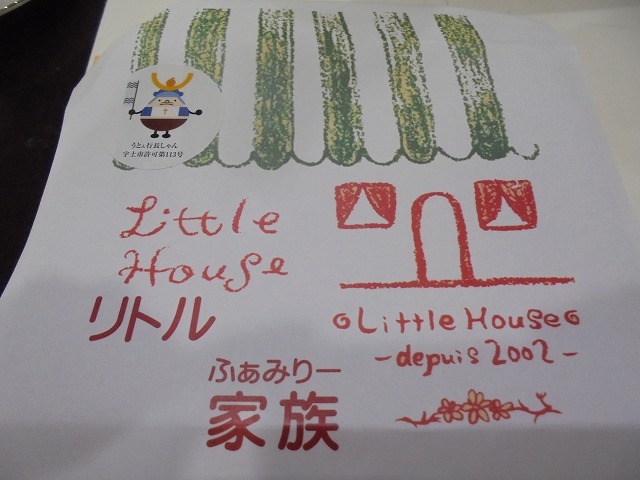 うとん行長しゃん
宇土市許可第113号
Little
House
リトル
ふぁみりー
家族
Little House
-depuis 2002-